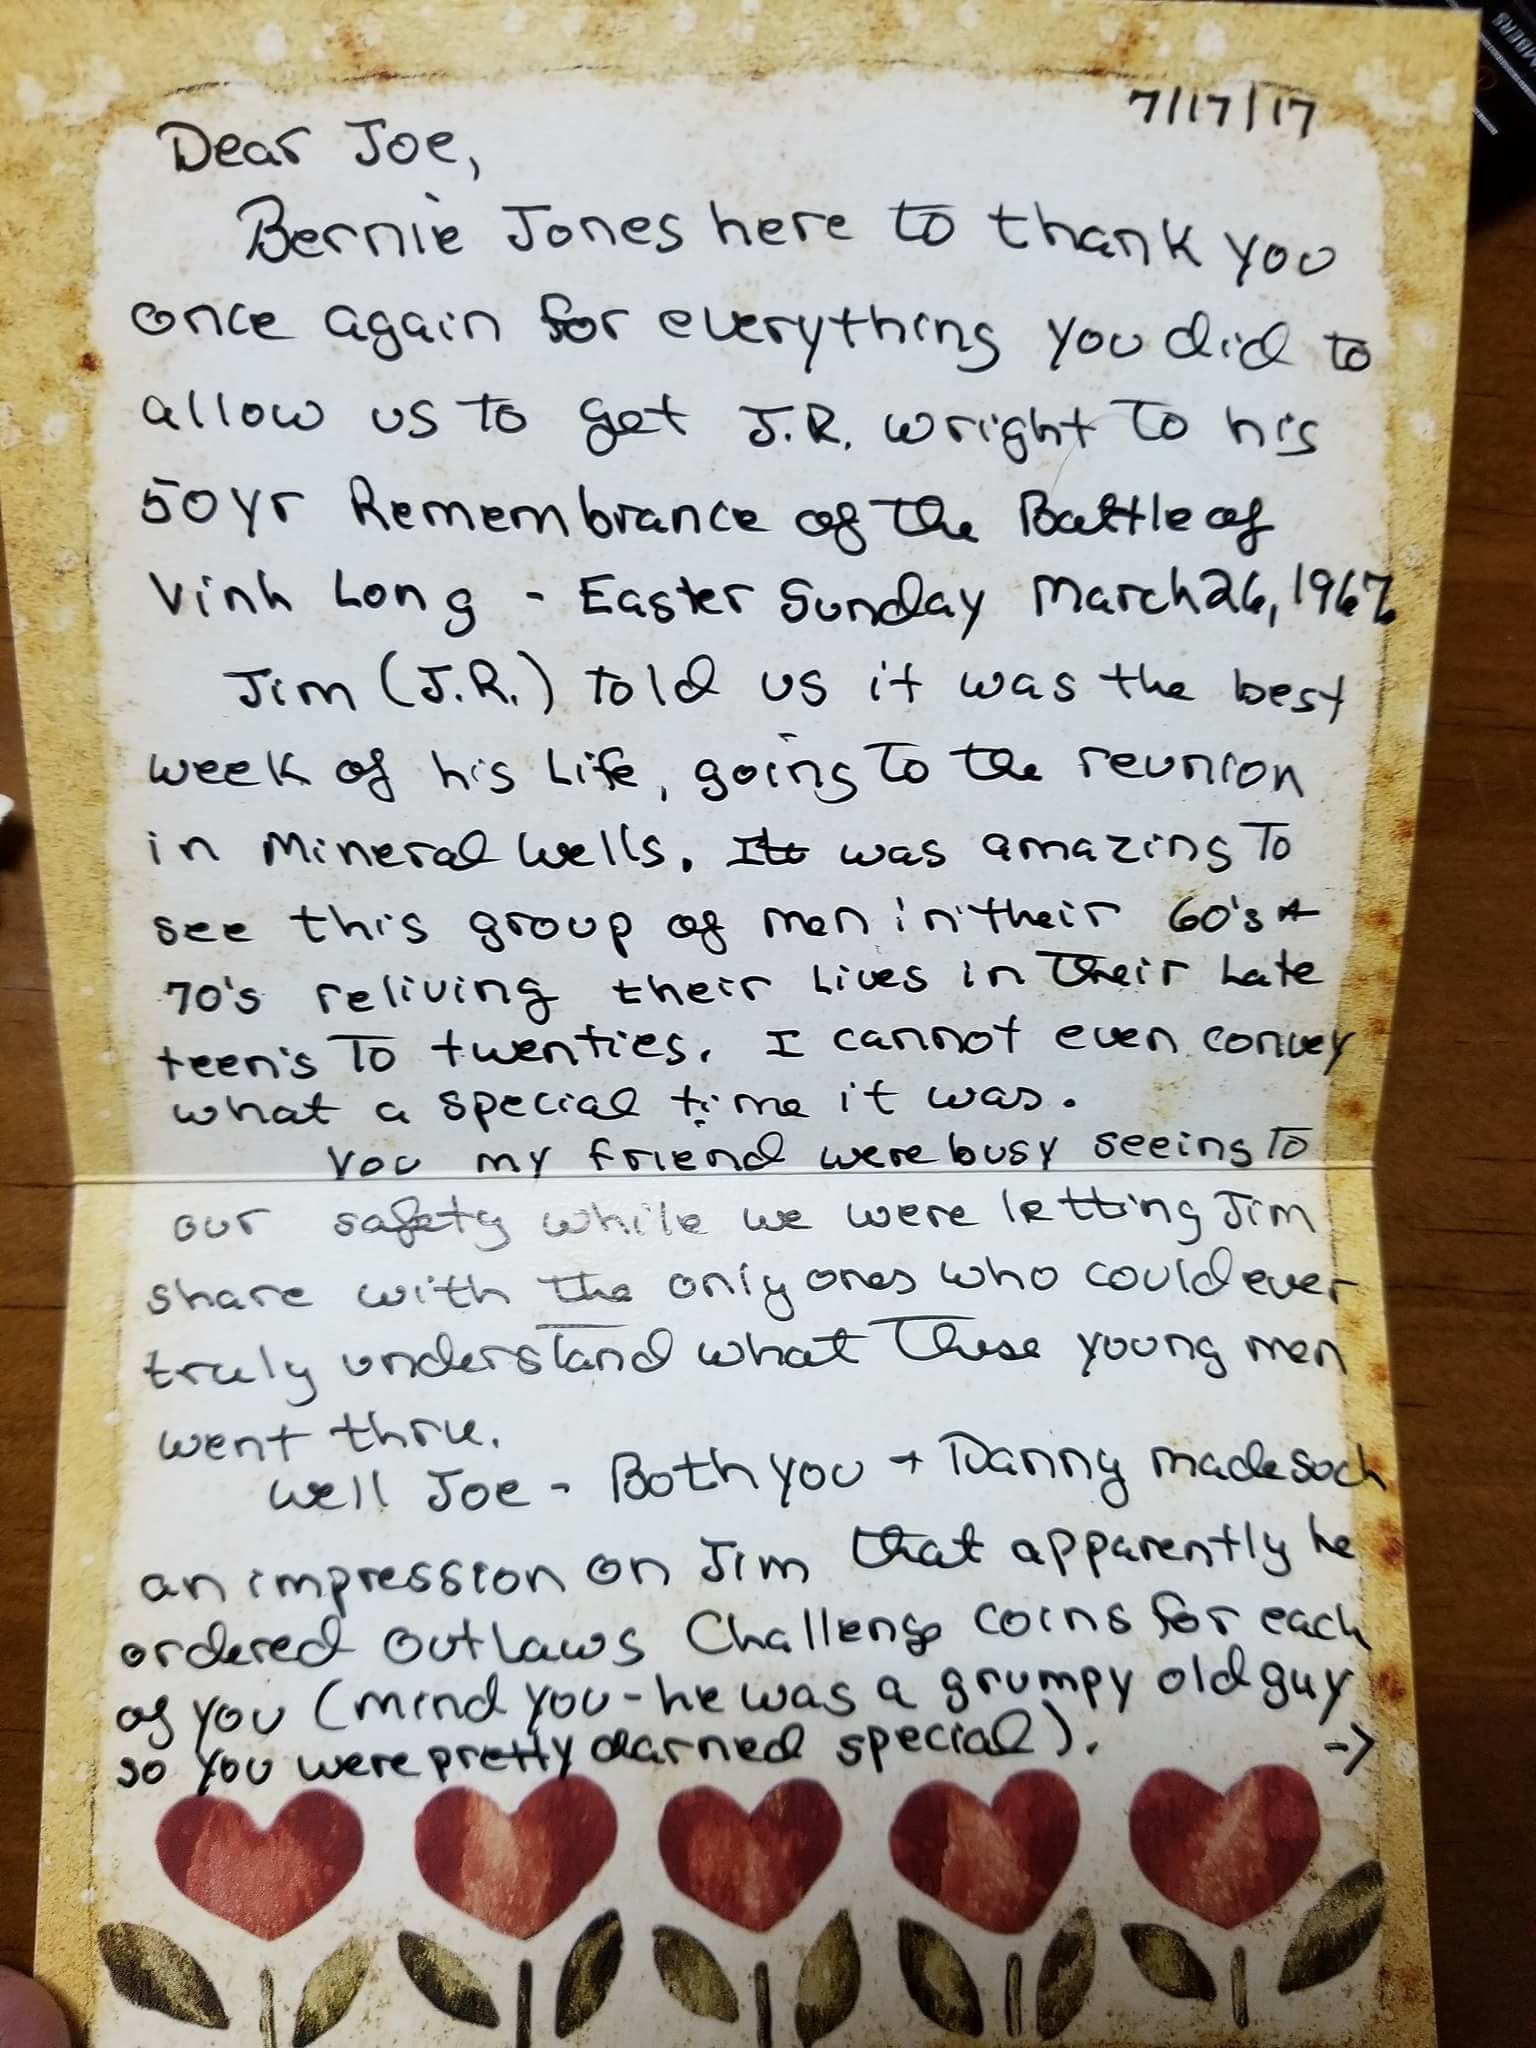 7/17/17
Dear Joe,
Bernie Jones here to thank you
once again for everything you did to
allow us to get J.R. Wright to his
50yr Remembrance of the Battle of
Vinh Long - Easter Sunday March 26, 1967
Jim (J.R.) told us it was the best
week of his Life, going to the reunion
in Mineral Wells. It was amazing To
see this group of men in their 60's +
70's reliving their Lives in their Late
teen's To twenties. I cannot even convey
what a special time it was.
You my friend were busy seeing To
our safety while we were letting Jim
share with the only ones who could ever
truly understand what these young men
went thru.
Well Joe - Both you + Danny made such
an impression on Jim that apparently he
ordered Outlaws Challenge coins for each
of you (mind you - he was a grumpy old guy
so you were pretty darned special). ->
MBERS